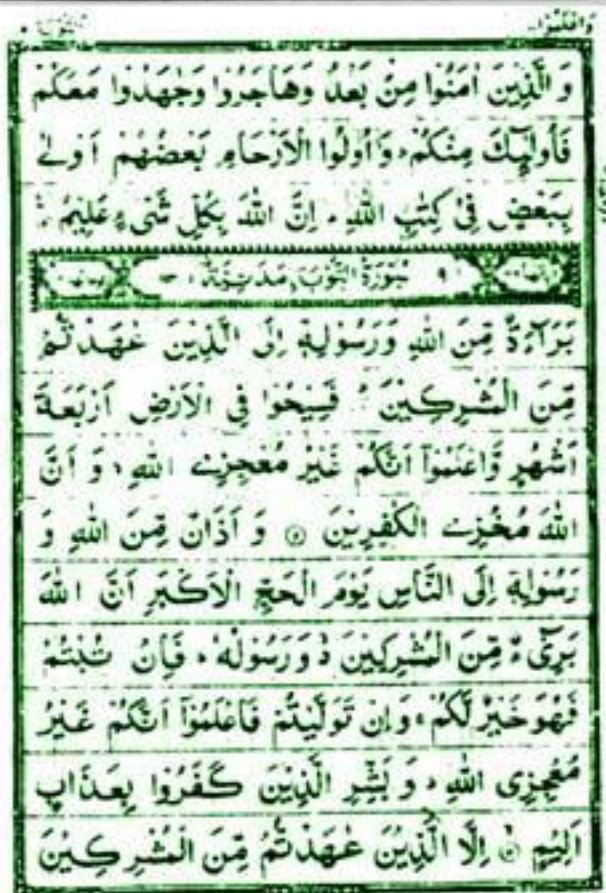 واعلموا ١٠ التوبة ٩
وَالَّذِينَ اٰمَنُوْا مِنْۢ بَعْدُ وَهَاجَرُوْا وَجٰهَدُوْا مَعَكُمْ
فَاُولٰٓئِكَ مِنْكُمْ ؕ وَاُولُوا الْاَرْحَامِ بَعْضُهُمْ اَوْلٰى
بِبَعْضٍ فِيْ كِتٰبِ اللّٰهِ ؕ اِنَّ اللّٰهَ بِكُلِّ شَيْءٍ عَلِيْمٌ
٩ سُوْرَةُ التَّوْبَةِ مَدَنِيَّةٌ
بَرَآءَةٌ مِّنَ اللّٰهِ وَرَسُوْلِهٖٓ اِلَى الَّذِيْنَ عٰهَدْتُّمْ
مِّنَ الْمُشْرِكِيْنَ فَسِيْحُوْا فِي الْاَرْضِ اَرْبَعَةَ
اَشْهُرٍ وَّاعْلَمُوْٓا اَنَّكُمْ غَيْرُ مُعْجِزِي اللّٰهِ ۙ وَ اَنَّ
اللّٰهَ مُخْزِي الْكٰفِرِيْنَ وَ اَذَانٌ مِّنَ اللّٰهِ وَ
رَسُوْلِهٖٓ اِلَى النَّاسِ يَوْمَ الْحَجِّ الْاَكْبَرِ اَنَّ اللّٰهَ
بَرِيْٓءٌ مِّنَ الْمُشْرِكِيْنَ ۙ وَرَسُوْلُهٗ ؕ فَاِنْ تُبْتُمْ
فَهُوَ خَيْرٌ لَّكُمْ ۚ وَاِنْ تَوَلَّيْتُمْ فَاعْلَمُوْٓا اَنَّكُمْ غَيْرُ
مُعْجِزِي اللّٰهِ ؕ وَ بَشِّرِ الَّذِيْنَ كَفَرُوْا بِعَذَابٍ
اَلِيْمٍ ۙ اِلَّا الَّذِيْنَ عٰهَدْتُّمْ مِّنَ الْمُشْرِكِيْنَ